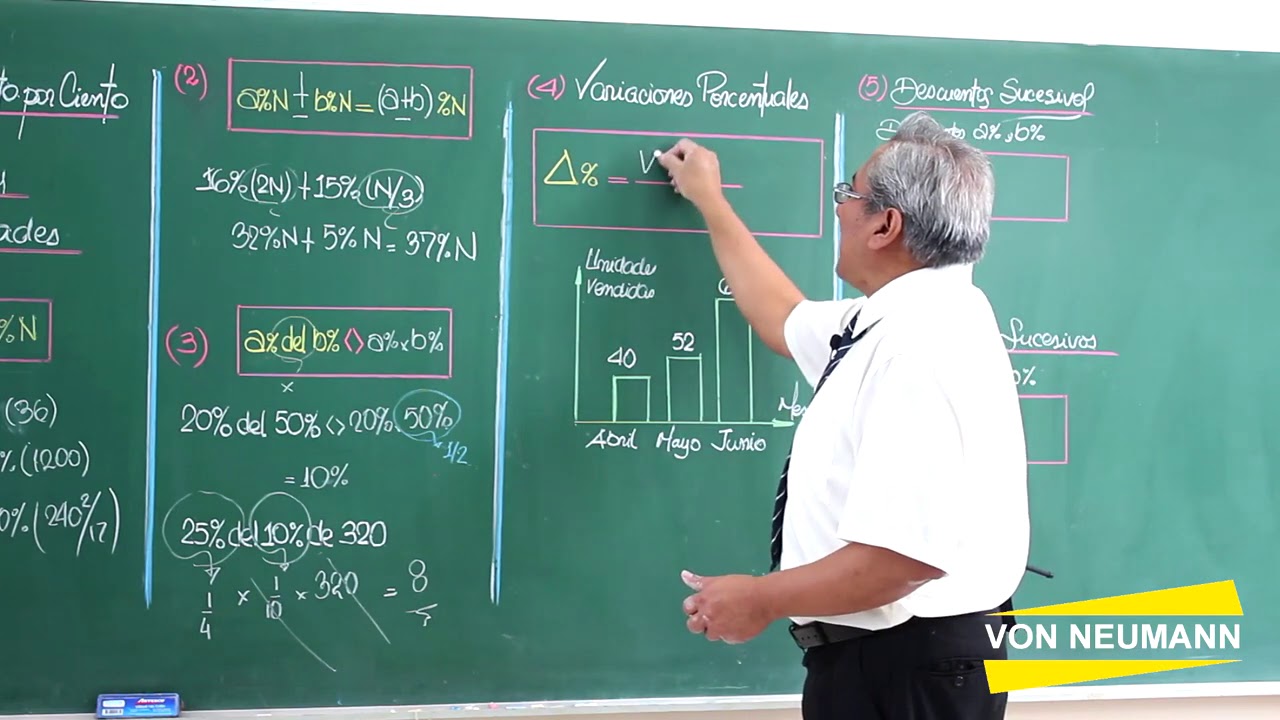 por Ciento
ades
% N
(36)
%(1200)
0%(240²/17)
(2)
a%N ± b%N = (a±b)%N
16%(2N) + 15%(N/3)
32%N + 5%N = 37%N
(3)
a% del b% <> a% x b%
x
20% del 50% <> 20% . 50%
1/2
= 10%
25% del 10% de 320
1/4 x 1/10 x 320 = 8
(4) Variaciones Porcentuales
Δ% = V
Unidades
Vendidas
40
52
Abril Mayo Junio
Mes
(5) Descuentos Sucesivos
a%, b%
Sucesivos
VON NEUMANN